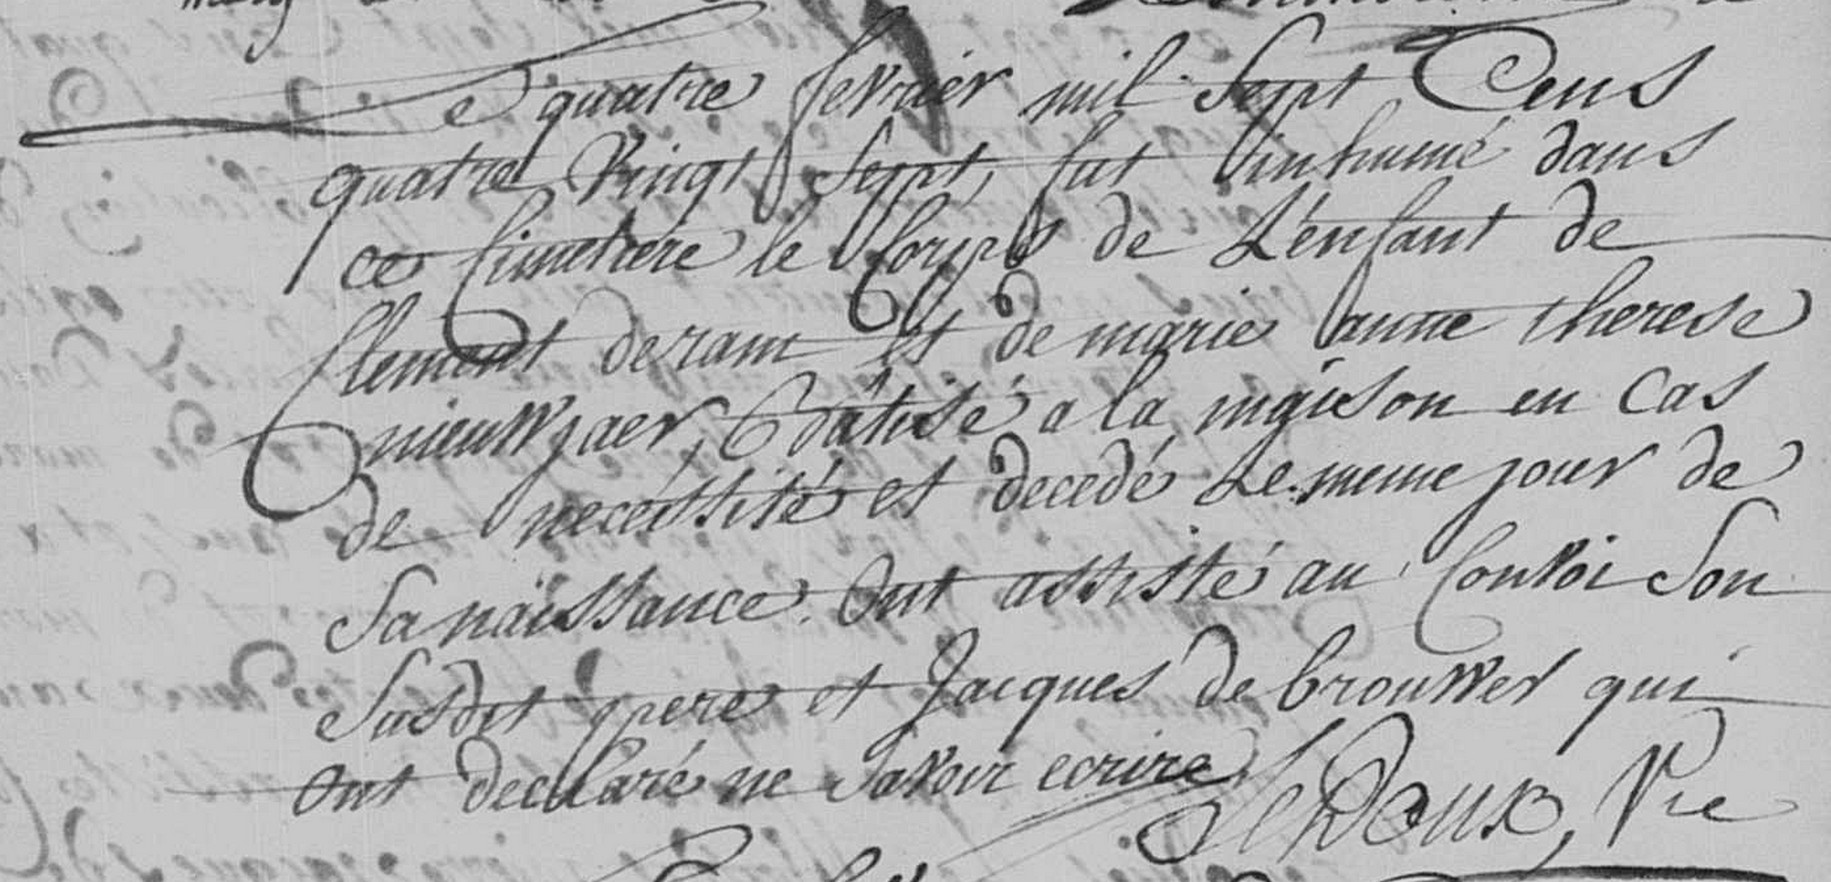 Le quatre fevrier mil Sept Cens
quatre Vingt Sept, fut inhumé dans
ce Cimetiere le Corps de L'enfant de
Clement deram et de marie anne therese
nieuwjaer, Bâtisé a la maison en Cas
de necéssité et decedé Le meme jour de
Sa naissance. Ont assisté au Convoi Son
Susdit pere et Jacques de brouwer qui
Ont declaré ne Savoir ecrire
LeDoux, Vre